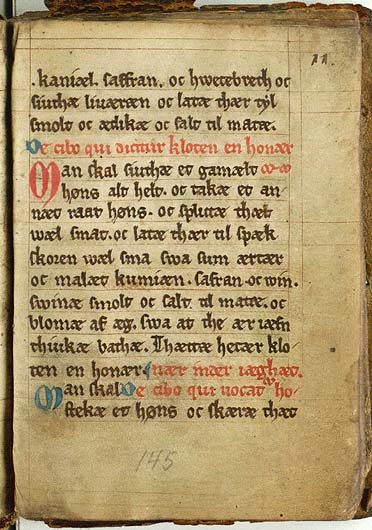 11.
. kaniæl. saffran. oc hwetebreth oc
siuthæ liuæræn oc latæ thær tyl
smolt oc ædikæ oc salt til matæ.
De cibo qui dicitur kloten en honær
Man skal siuthæ et gamælt
høns alt helt. oc takæ et an-
næt raat høns. oc splittæ thæt
wæl smat. oc latæ thær til spæk
skoren wæl sma swa sum ærtær
oc malæt kumiæn. safran. oc win.
swinæ smolt oc salt til matæ. oc
blomæ af æg. swa at the ær iæfn
thiukæ bathæ. Thættæ hetær klo-
ten en honær.
Man skal De cibo qui vocatur ho-
stekæ et høns oc skæræ thæt
145